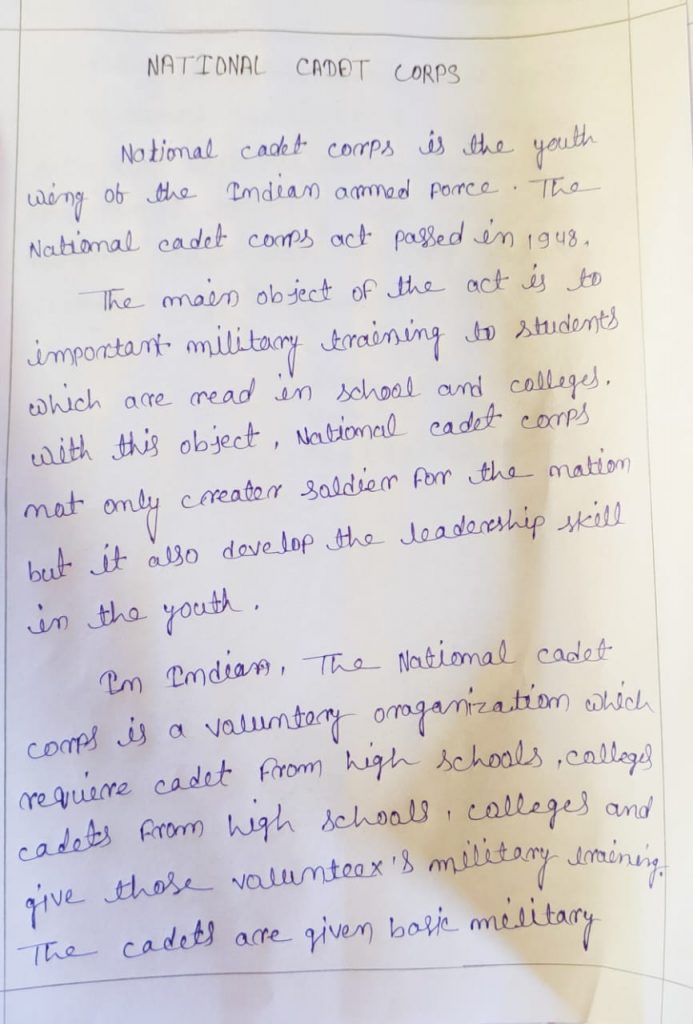 NATIONAL CADET CORPS
National cadet corps is the youth
wing of the Indian armed force. The
National cadet corps act passed in 1948.
The main object of the act is to
important military training to students
which are read in school and colleges.
with this object, National cadet corps
not only creater soldier for the nation
but it also develop the leadership skill
in the youth.
In Indian, The National cadet
corps is a voluntary oraganization which
requiere cadet from high schools, colleges
cadets from high schools, colleges and
give those valunteex's military training.
The cadets are given basic military